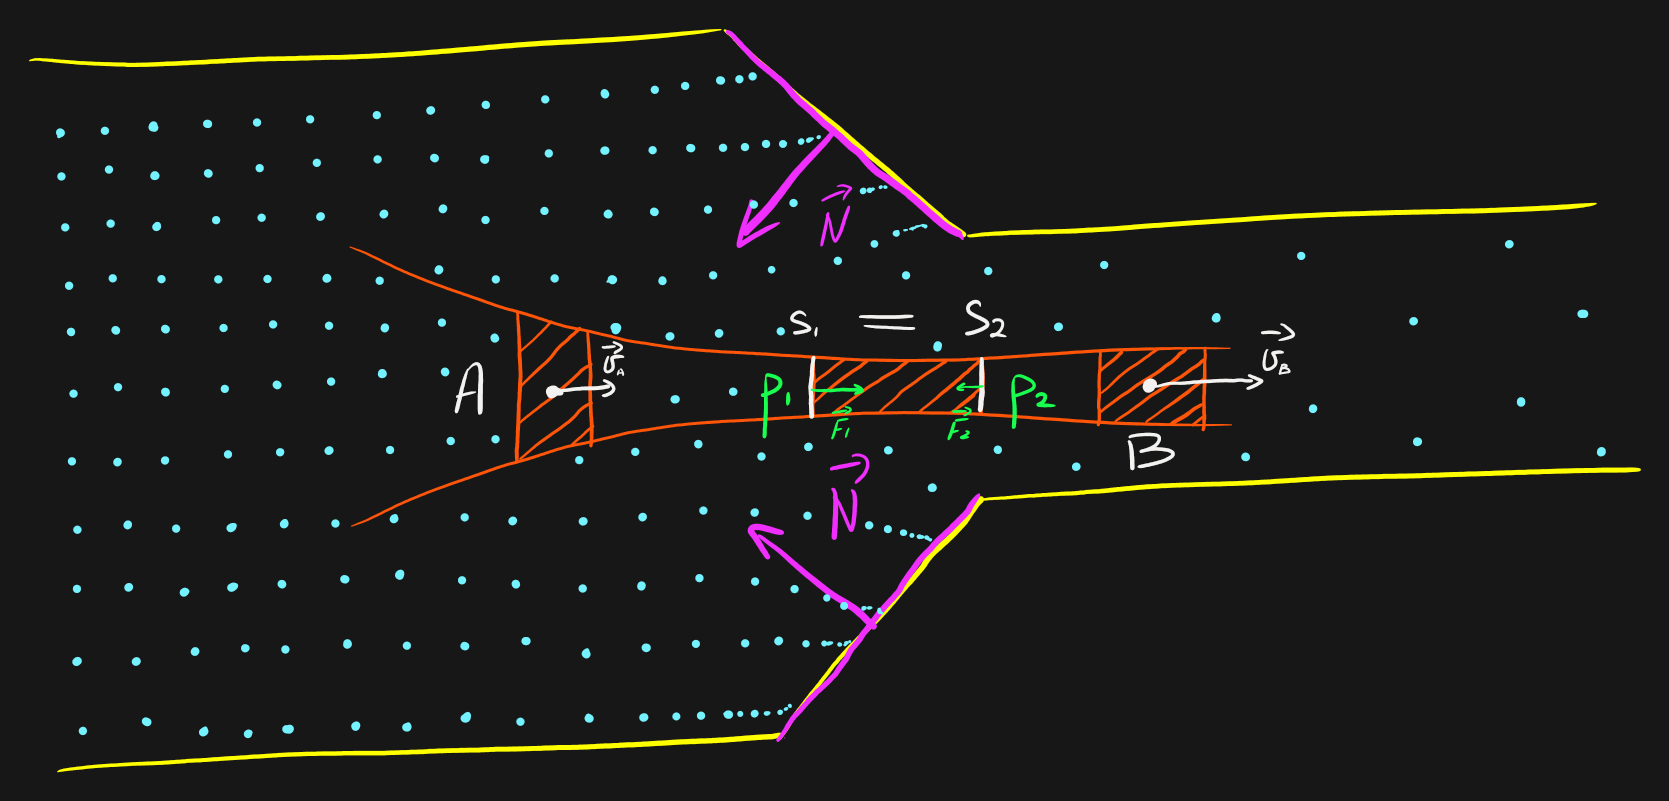 N⃗
S₁ = S₂
A
v⃗_A
P₁
F⃗₁
F⃗₂
P₂
v⃗_B
B
N⃗